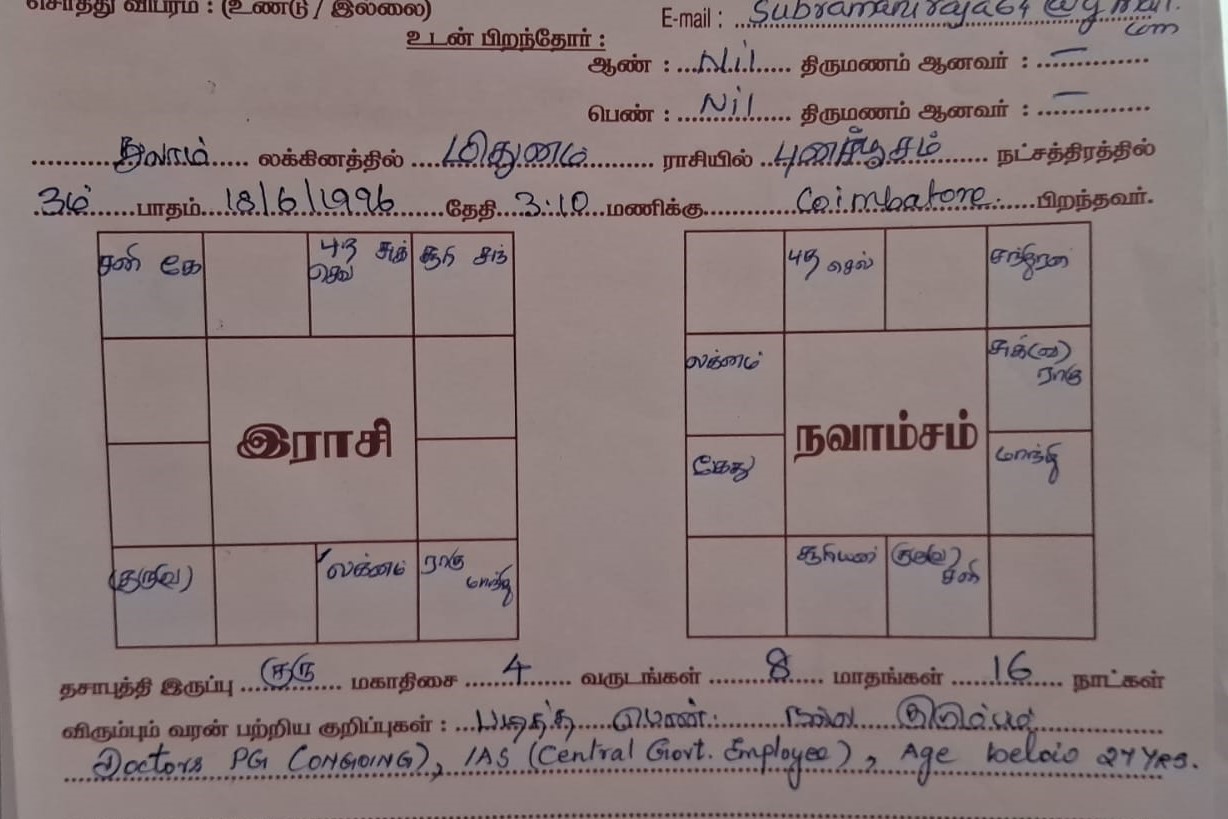 சொத்து விபரம் : (உண்டு / இல்லை)
E-mail : Subramaniraja64@gmail.com
உடன் பிறந்தோர் :
ஆண் : Nil திருமணம் ஆனவர் : —
பெண் : Nil திருமணம் ஆனவர் : —
துலாம் லக்கினத்தில் மிதுனம் ராசியில் புனர்பூசம் நட்சத்திரத்தில்
3ம் பாதம் 18/6/1996 தேதி 3.10 மணிக்கு Coimbatore. பிறந்தவர்.
சனி கே
புத சுக்
செவ்
சூரி சந்
இராசி
குரு(வ)
லக்னம்
ராகு
மாந்தி
புத செவ்
சந்திரன்
லக்னம்
சுக்(வ)
ராகு
நவாம்சம்
கேது
மாந்தி
சூரியன்
குரு(வ)
சனி
தசாபுத்தி இருப்பு குரு மகாதிசை 4 வருடங்கள் 8 மாதங்கள் 16 நாட்கள்
விரும்பும் வரன் பற்றிய குறிப்புகள் : படித்த பெண். நல்ல குடும்பம்
Doctors PG (ONGOING), IAS (Central Govt. Employee), Age below 27 Yrs.